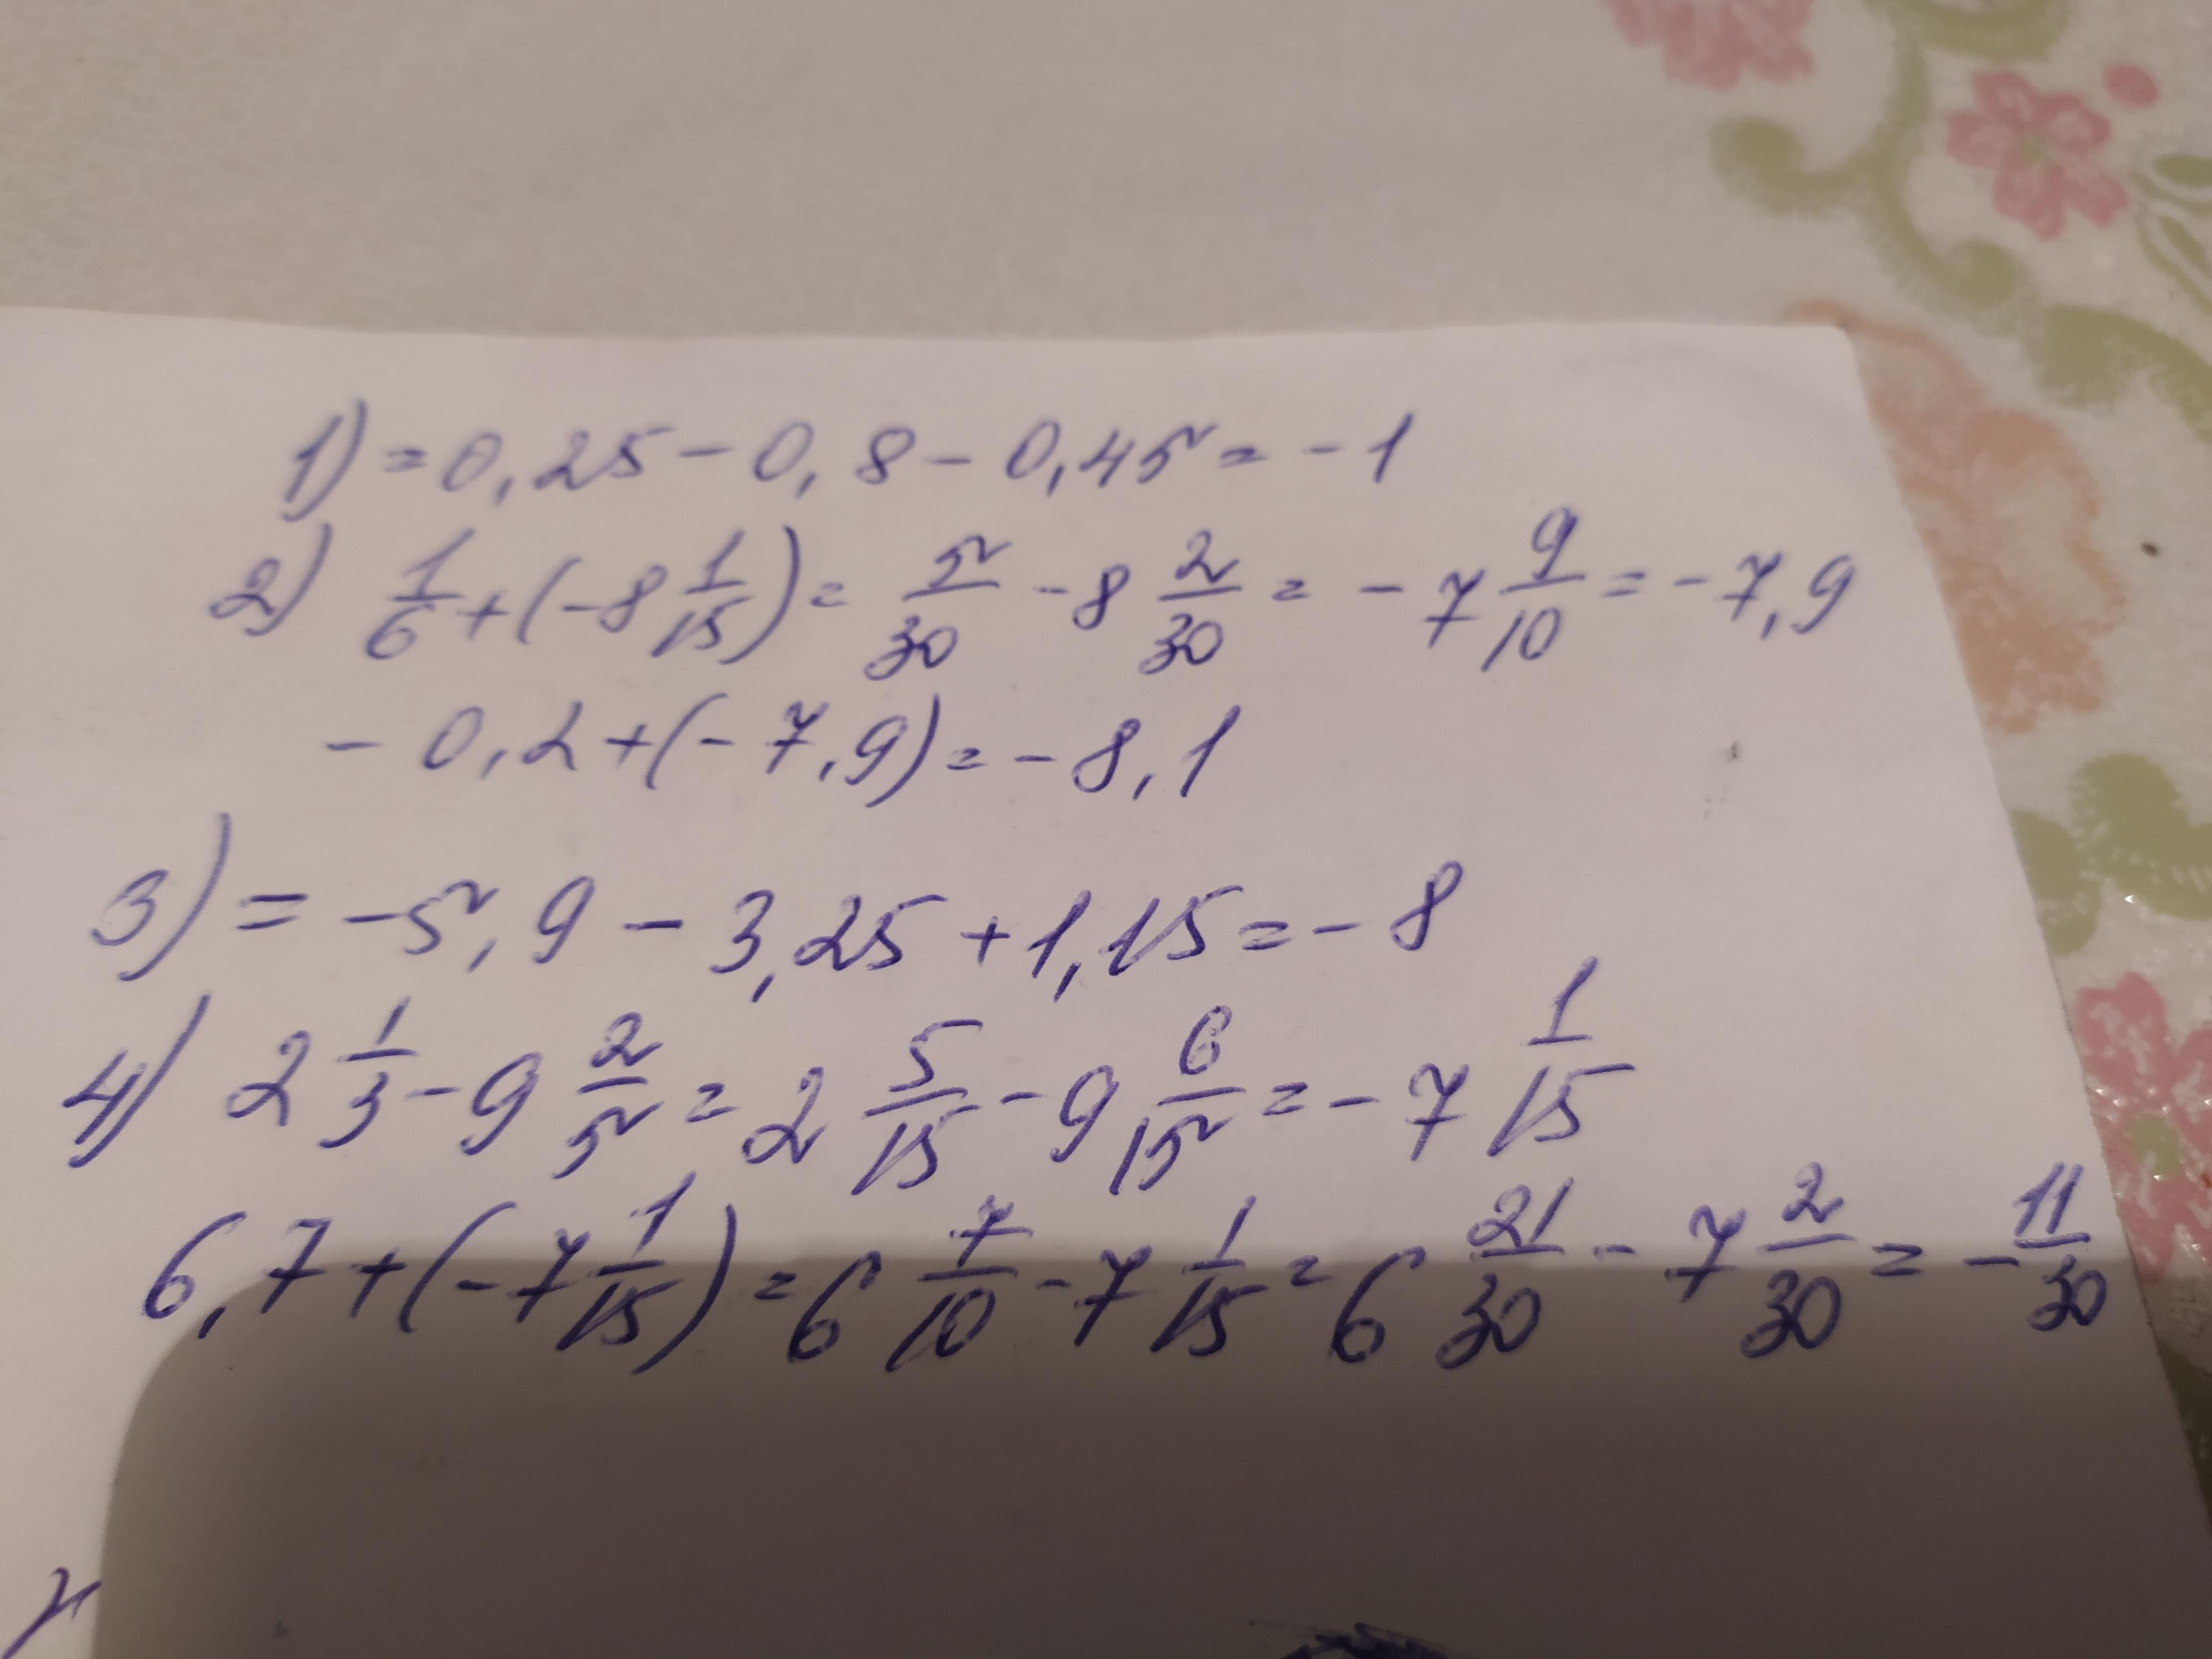 1) = 0,25 - 0,8 - 0,45 = -1
2) 1/6 + (-8 1/15) = 5/30 - 8 2/30 = -7 9/10 = -7,9
-0,2 + (-7,9) = -8,1
3) = -5,9 - 3,25 + 1,15 = -8
4) 2 1/3 - 9 2/5 = 2 5/15 - 9 6/15 = -7 1/15
6,7 + (-7 1/15) = 6 7/10 - 7 1/15 = 6 21/30 - 7 2/30 = -11/30